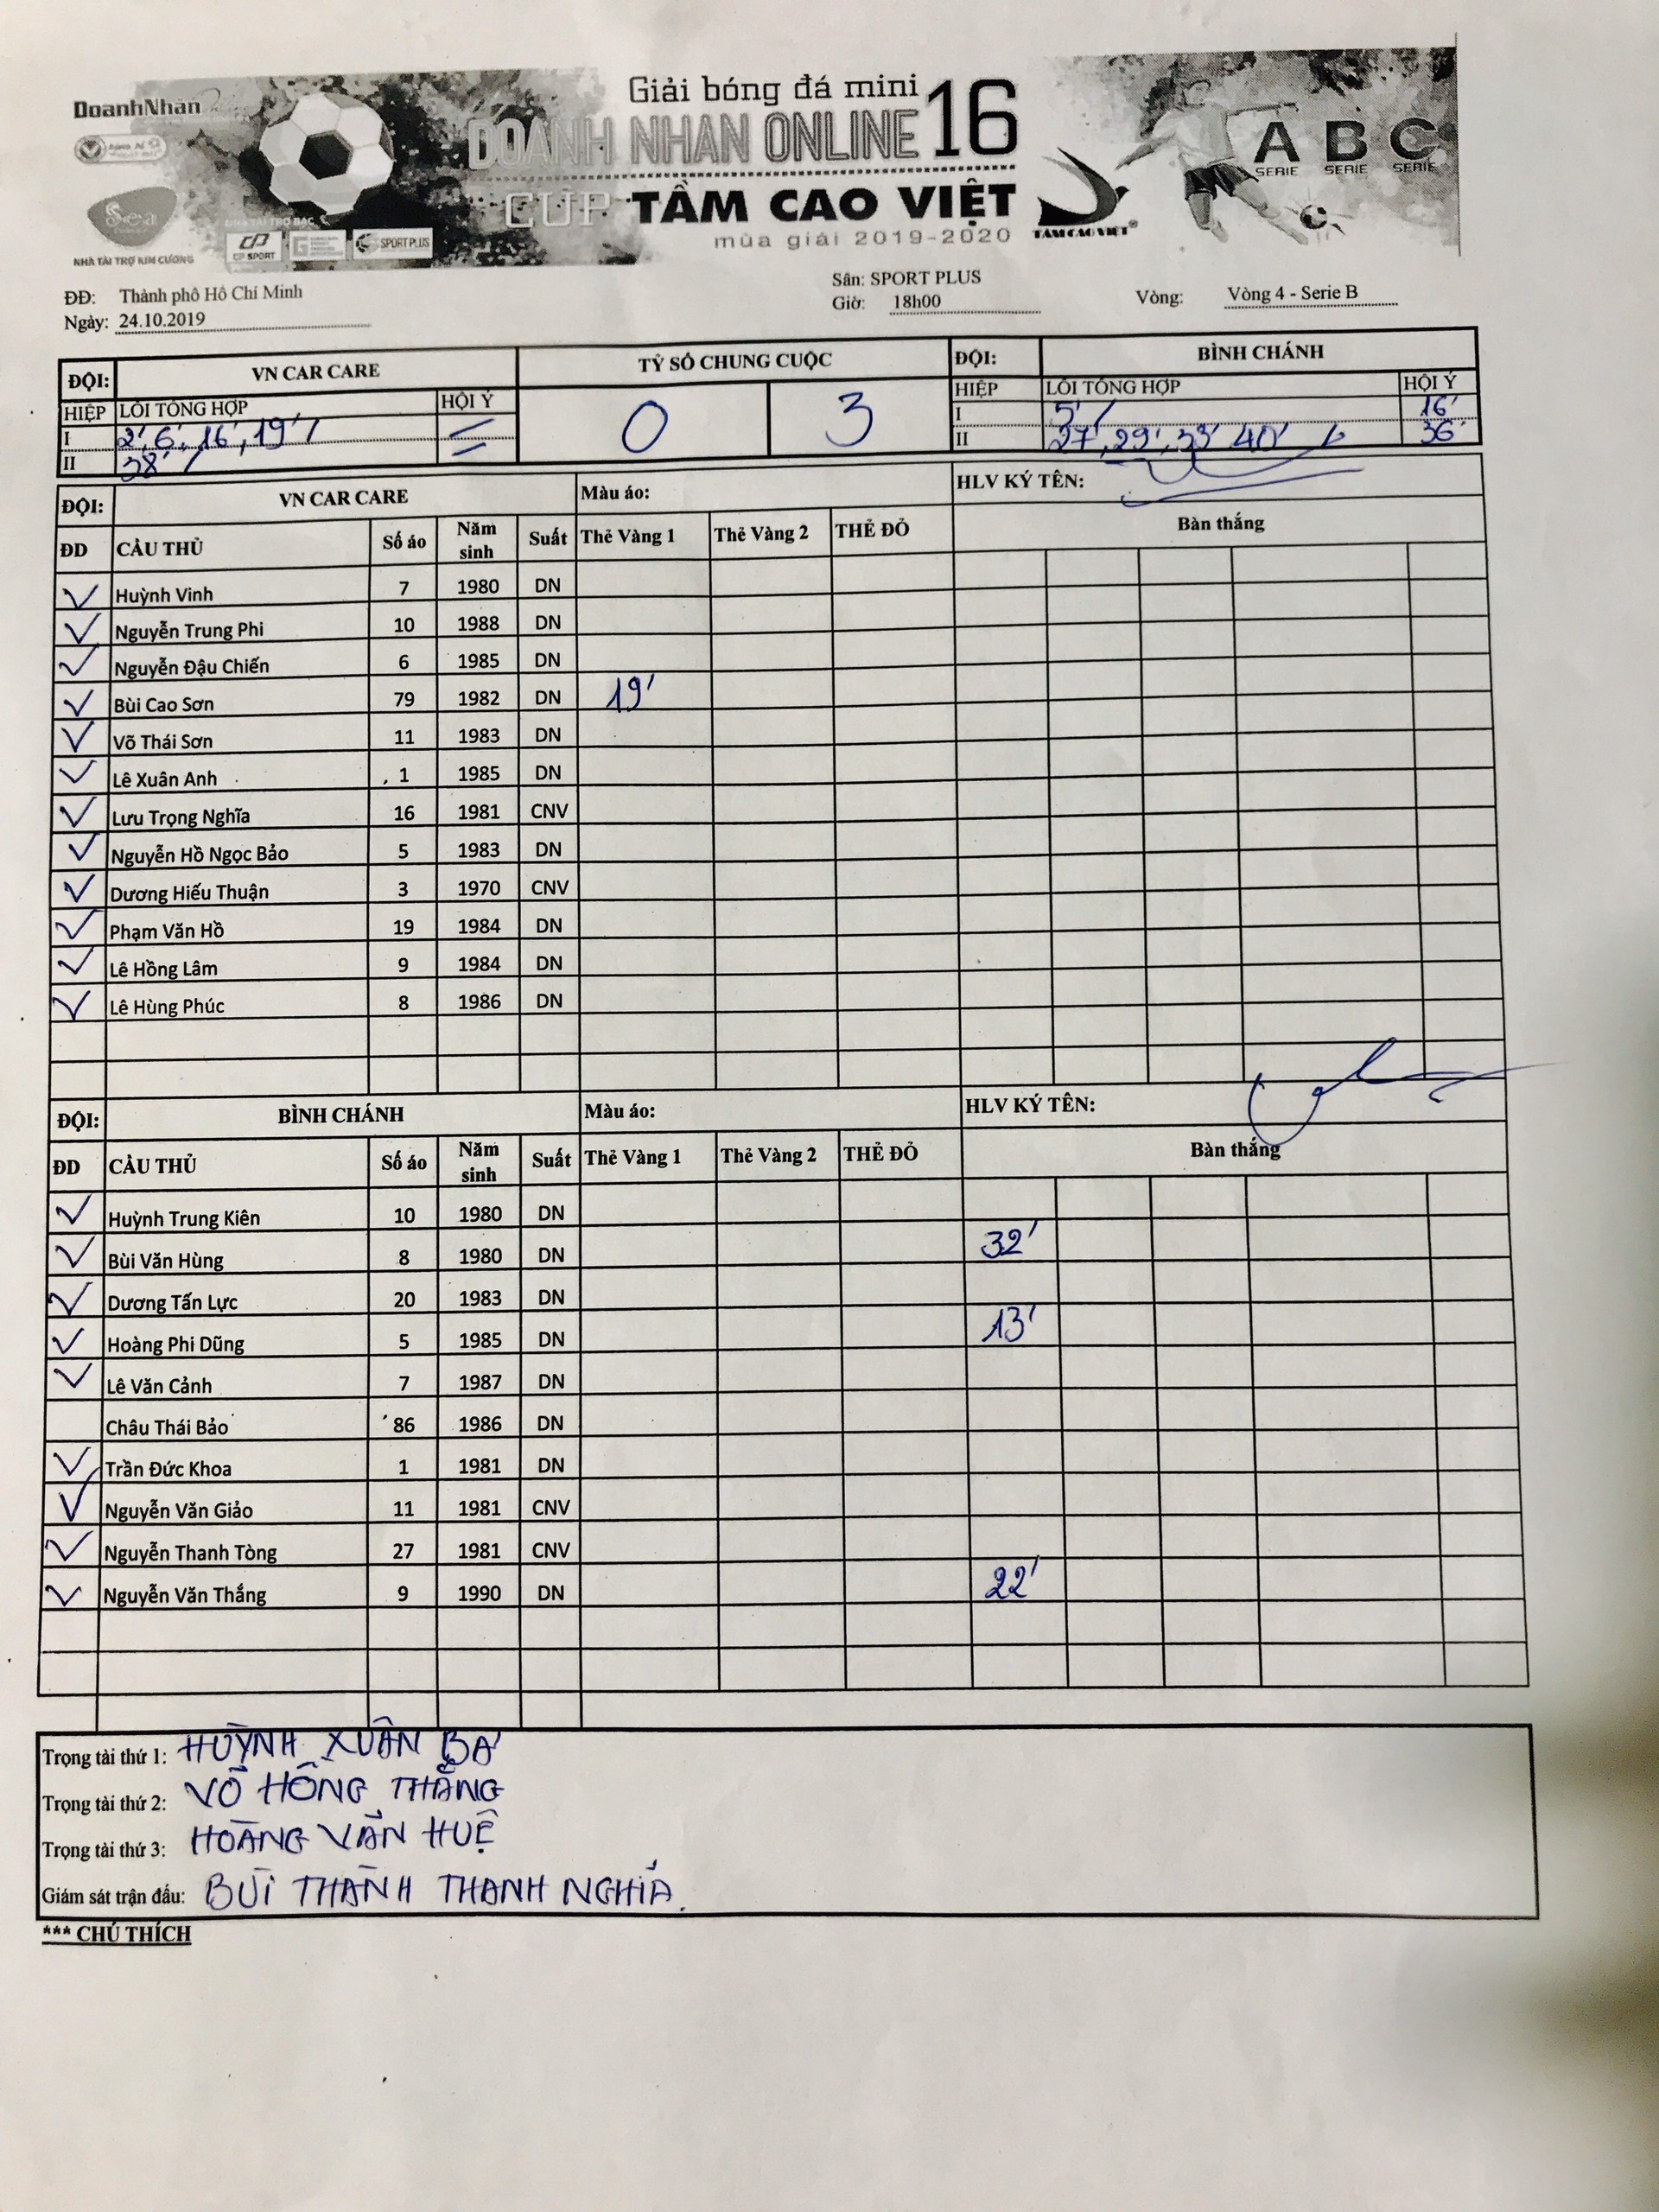 Giải bóng đá mini
DOANH NHAN ONLINE 16
CUP TẦM CAO VIỆT
mùa giải 2019-2020
DoanhNhân
Sea
NHÀ TÀI TRỢ KIM CƯƠNG
NHÀ TÀI TRỢ BẠC
CP SPORT
SPORT PLUS
TẦM CAO VIỆT®
A B C
SERIE SERIE SERIE
ĐĐ: Thành phố Hồ Chí Minh
Sân: SPORT PLUS
Ngày: 24.10.2019
Giờ: 18h00
Vòng: Vòng 4 - Serie B
ĐỘI: VN CAR CARE TỶ SỐ CHUNG CUỘC ĐỘI: BÌNH CHÁNH
HIỆP LỖI TỔNG HỢP HỘI Ý 0 3 HIỆP LỖI TỔNG HỢP HỘI Ý
I 2', 6', 16', 19' I 5' 16'
II 38' II 27', 29', 33' 40' 36'
ĐỘI: VN CAR CARE Màu áo: HLV KÝ TÊN:
ĐD CẦU THỦ Số áo Năm sinh Suất Thẻ Vàng 1 Thẻ Vàng 2 THẺ ĐỎ Bàn thắng
Huỳnh Vinh 7 1980 DN
Nguyễn Trung Phi 10 1988 DN
Nguyễn Đậu Chiến 6 1985 DN
Bùi Cao Sơn 79 1982 DN 19'
Võ Thái Sơn 11 1983 DN
Lê Xuân Anh 1 1985 DN
Lưu Trọng Nghĩa 16 1981 CNV
Nguyễn Hồ Ngọc Bảo 5 1983 DN
Dương Hiếu Thuận 3 1970 CNV
Phạm Văn Hồ 19 1984 DN
Lê Hồng Lâm 9 1984 DN
Lê Hùng Phúc 8 1986 DN
ĐỘI: BÌNH CHÁNH Màu áo: HLV KÝ TÊN:
ĐD CẦU THỦ Số áo Năm sinh Suất Thẻ Vàng 1 Thẻ Vàng 2 THẺ ĐỎ Bàn thắng
Huỳnh Trung Kiên 10 1980 DN
Bùi Văn Hùng 8 1980 DN 32'
Dương Tấn Lực 20 1983 DN
Hoàng Phi Dũng 5 1985 DN 13'
Lê Văn Cảnh 7 1987 DN
Châu Thái Bảo 86 1986 DN
Trần Đức Khoa 1 1981 DN
Nguyễn Văn Giảo 11 1981 CNV
Nguyễn Thanh Tòng 27 1981 CNV
Nguyễn Văn Thắng 9 1990 DN 22'
Trọng tài thứ 1: HUỲNH XUÂN BÁ
Trọng tài thứ 2: VÕ HỒNG THẮNG
Trọng tài thứ 3: HOÀNG VĂN HUỆ
Giám sát trận đấu: BÙI THÀNH THANH NGHĨA.
*** CHÚ THÍCH